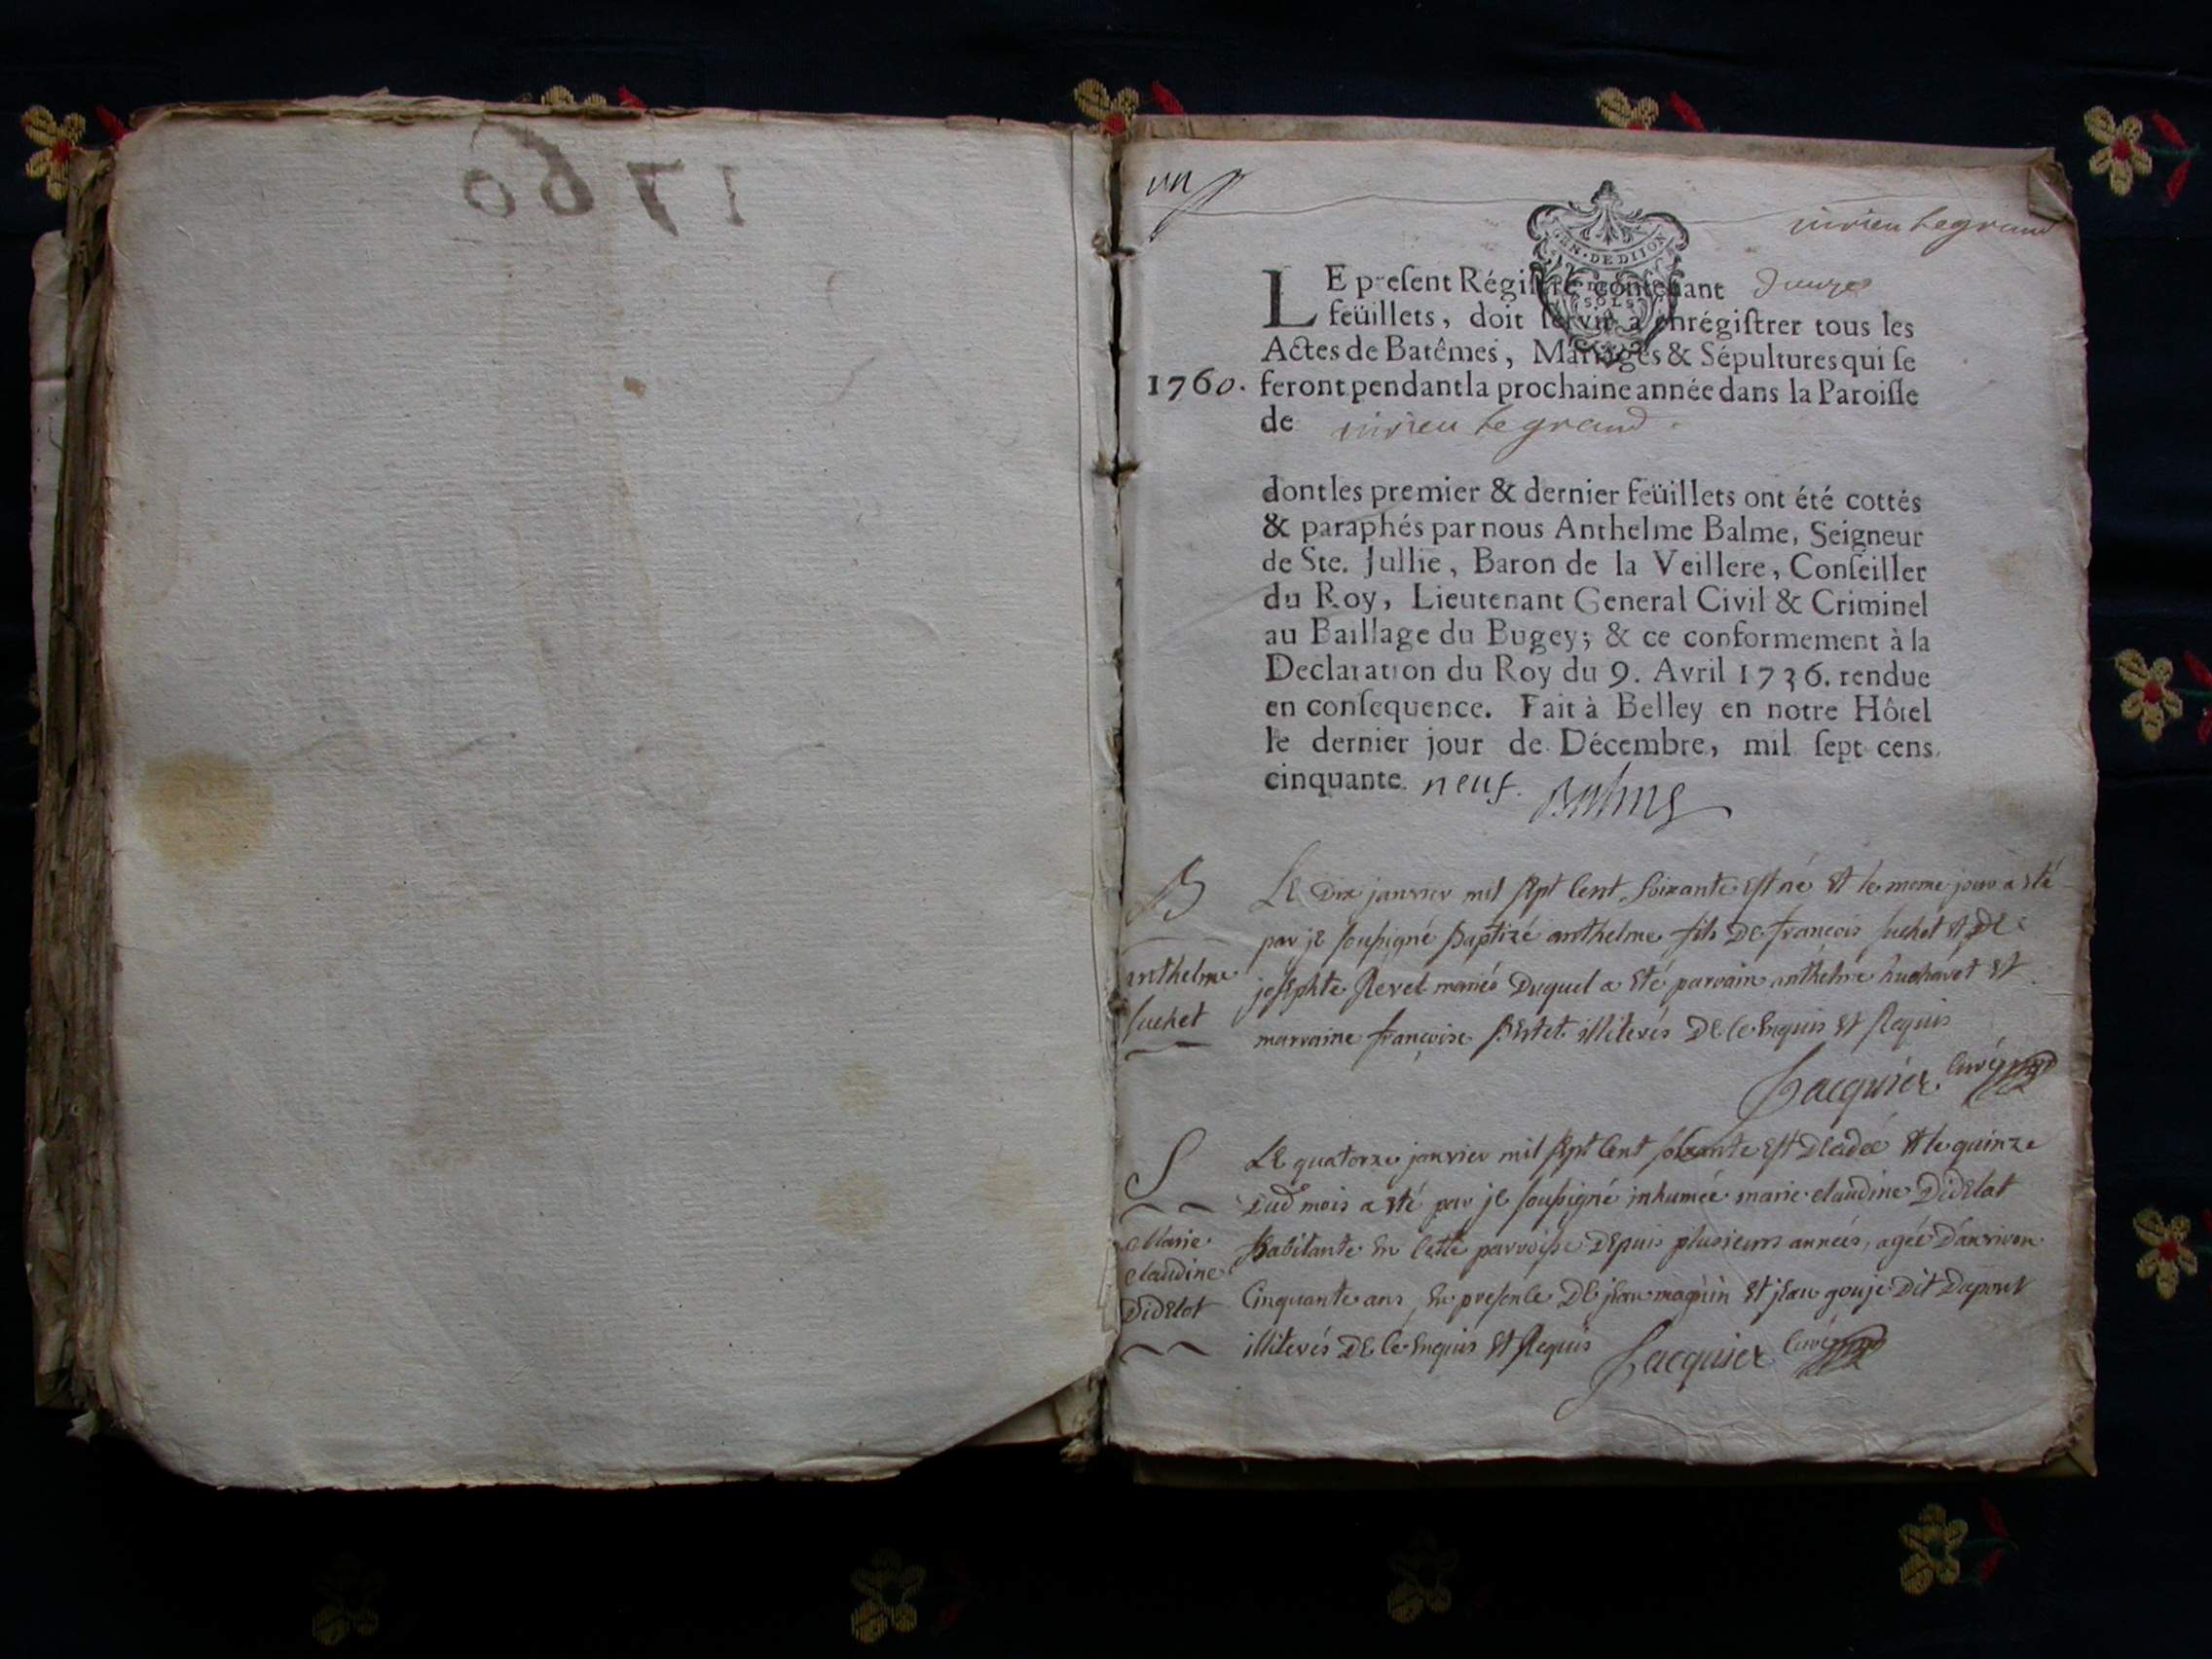 1760
un
virieu le grand
GEN. DE DIJON
SOLS
LE preſent Régiſtre contenant douze
feüillets, doit ſervir a enrégiſtrer tous les
Actes de Batêmes, Mariages & Sépultures qui ſe
1760. feront pendant la prochaine année dans la Paroiſſe
de virieu le grand.
dont les premier & dernier feüillets ont été cottés
& paraphés par nous Anthelme Balme, Seigneur
de Ste. Jullie, Baron de la Veillere, Conſeiller
du Roy, Lieutenant General Civil & Criminel
au Baillage du Bugey; & ce conformement à la
Declaration du Roy du 9. Avril 1736. rendue
en conſequence. Fait à Belley en notre Hôtel
le dernier jour de Décembre, mil ſept cens
cinquante neuf. Balme
B
anthelme
suchet
Le Dix janvier mil sept Cent soixante est né et le meme jour a eté
par je soussigné Baptizé anthelme fils De françois suchet et De
josephte Revel mariés Duquel a eté parrain anthelme et
marraine françoise illiterés De ce Enquis et Requis
Jacquier Curé
S
Marie
claudine
Didelot
Le quatorze janvier mil sept Cent soixante est Décedée et le quinze
Dud mois a eté par je soussigné inhumée marie claudine Didelot
habitante En Cette parroisse Depuis plusieurs années, agée D'environ
Cinquante ans, En presence De jean maquin et jean gouje Dit Dupont
illiterés De ce Enquis et Requis Jacquier Curé